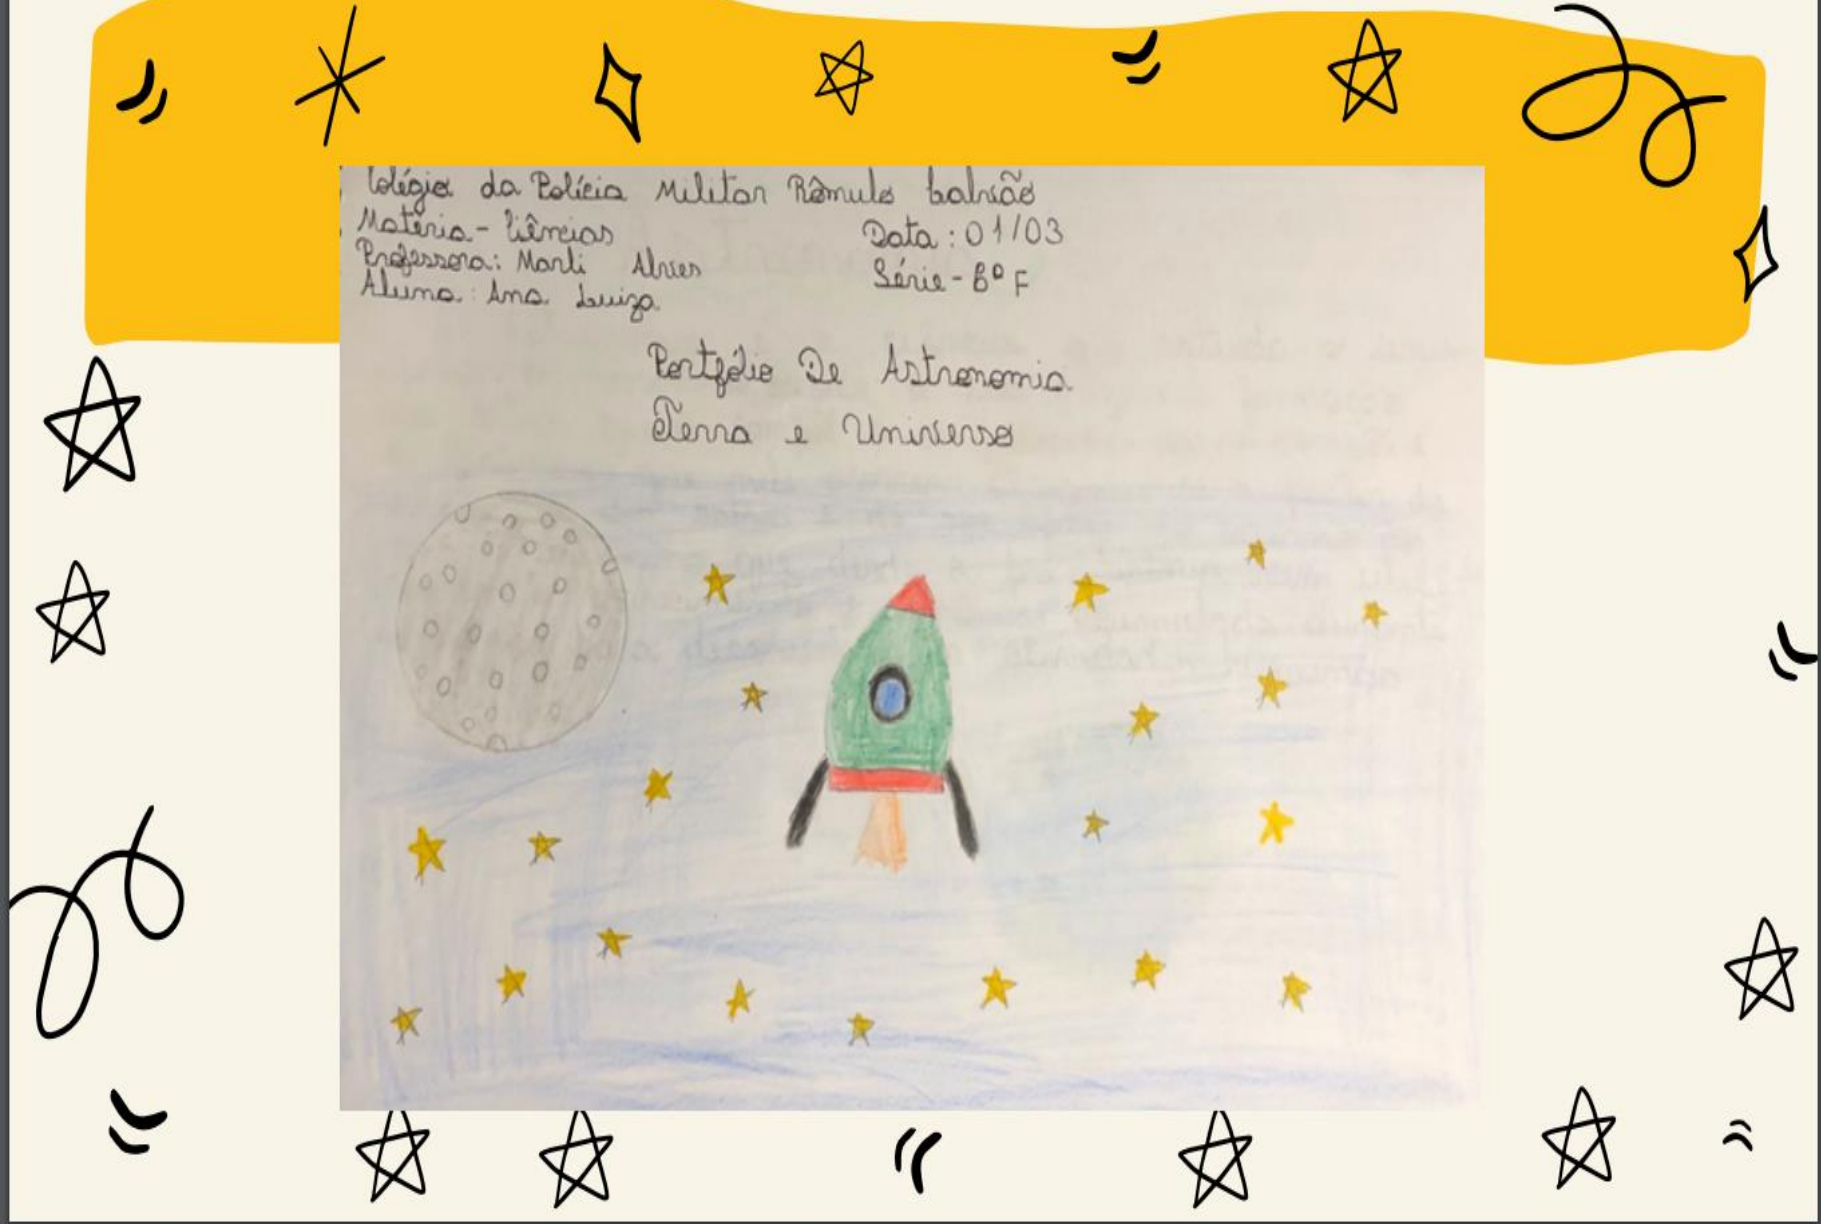 Colégio da Polícia Militar Rômulo Galvão
Matéria - Ciências
Data: 01/03
Professora: Marli Alves
Série - 8º F
Aluna: Ana Luiza
Portfólio De Astronomia
Terra e Universo